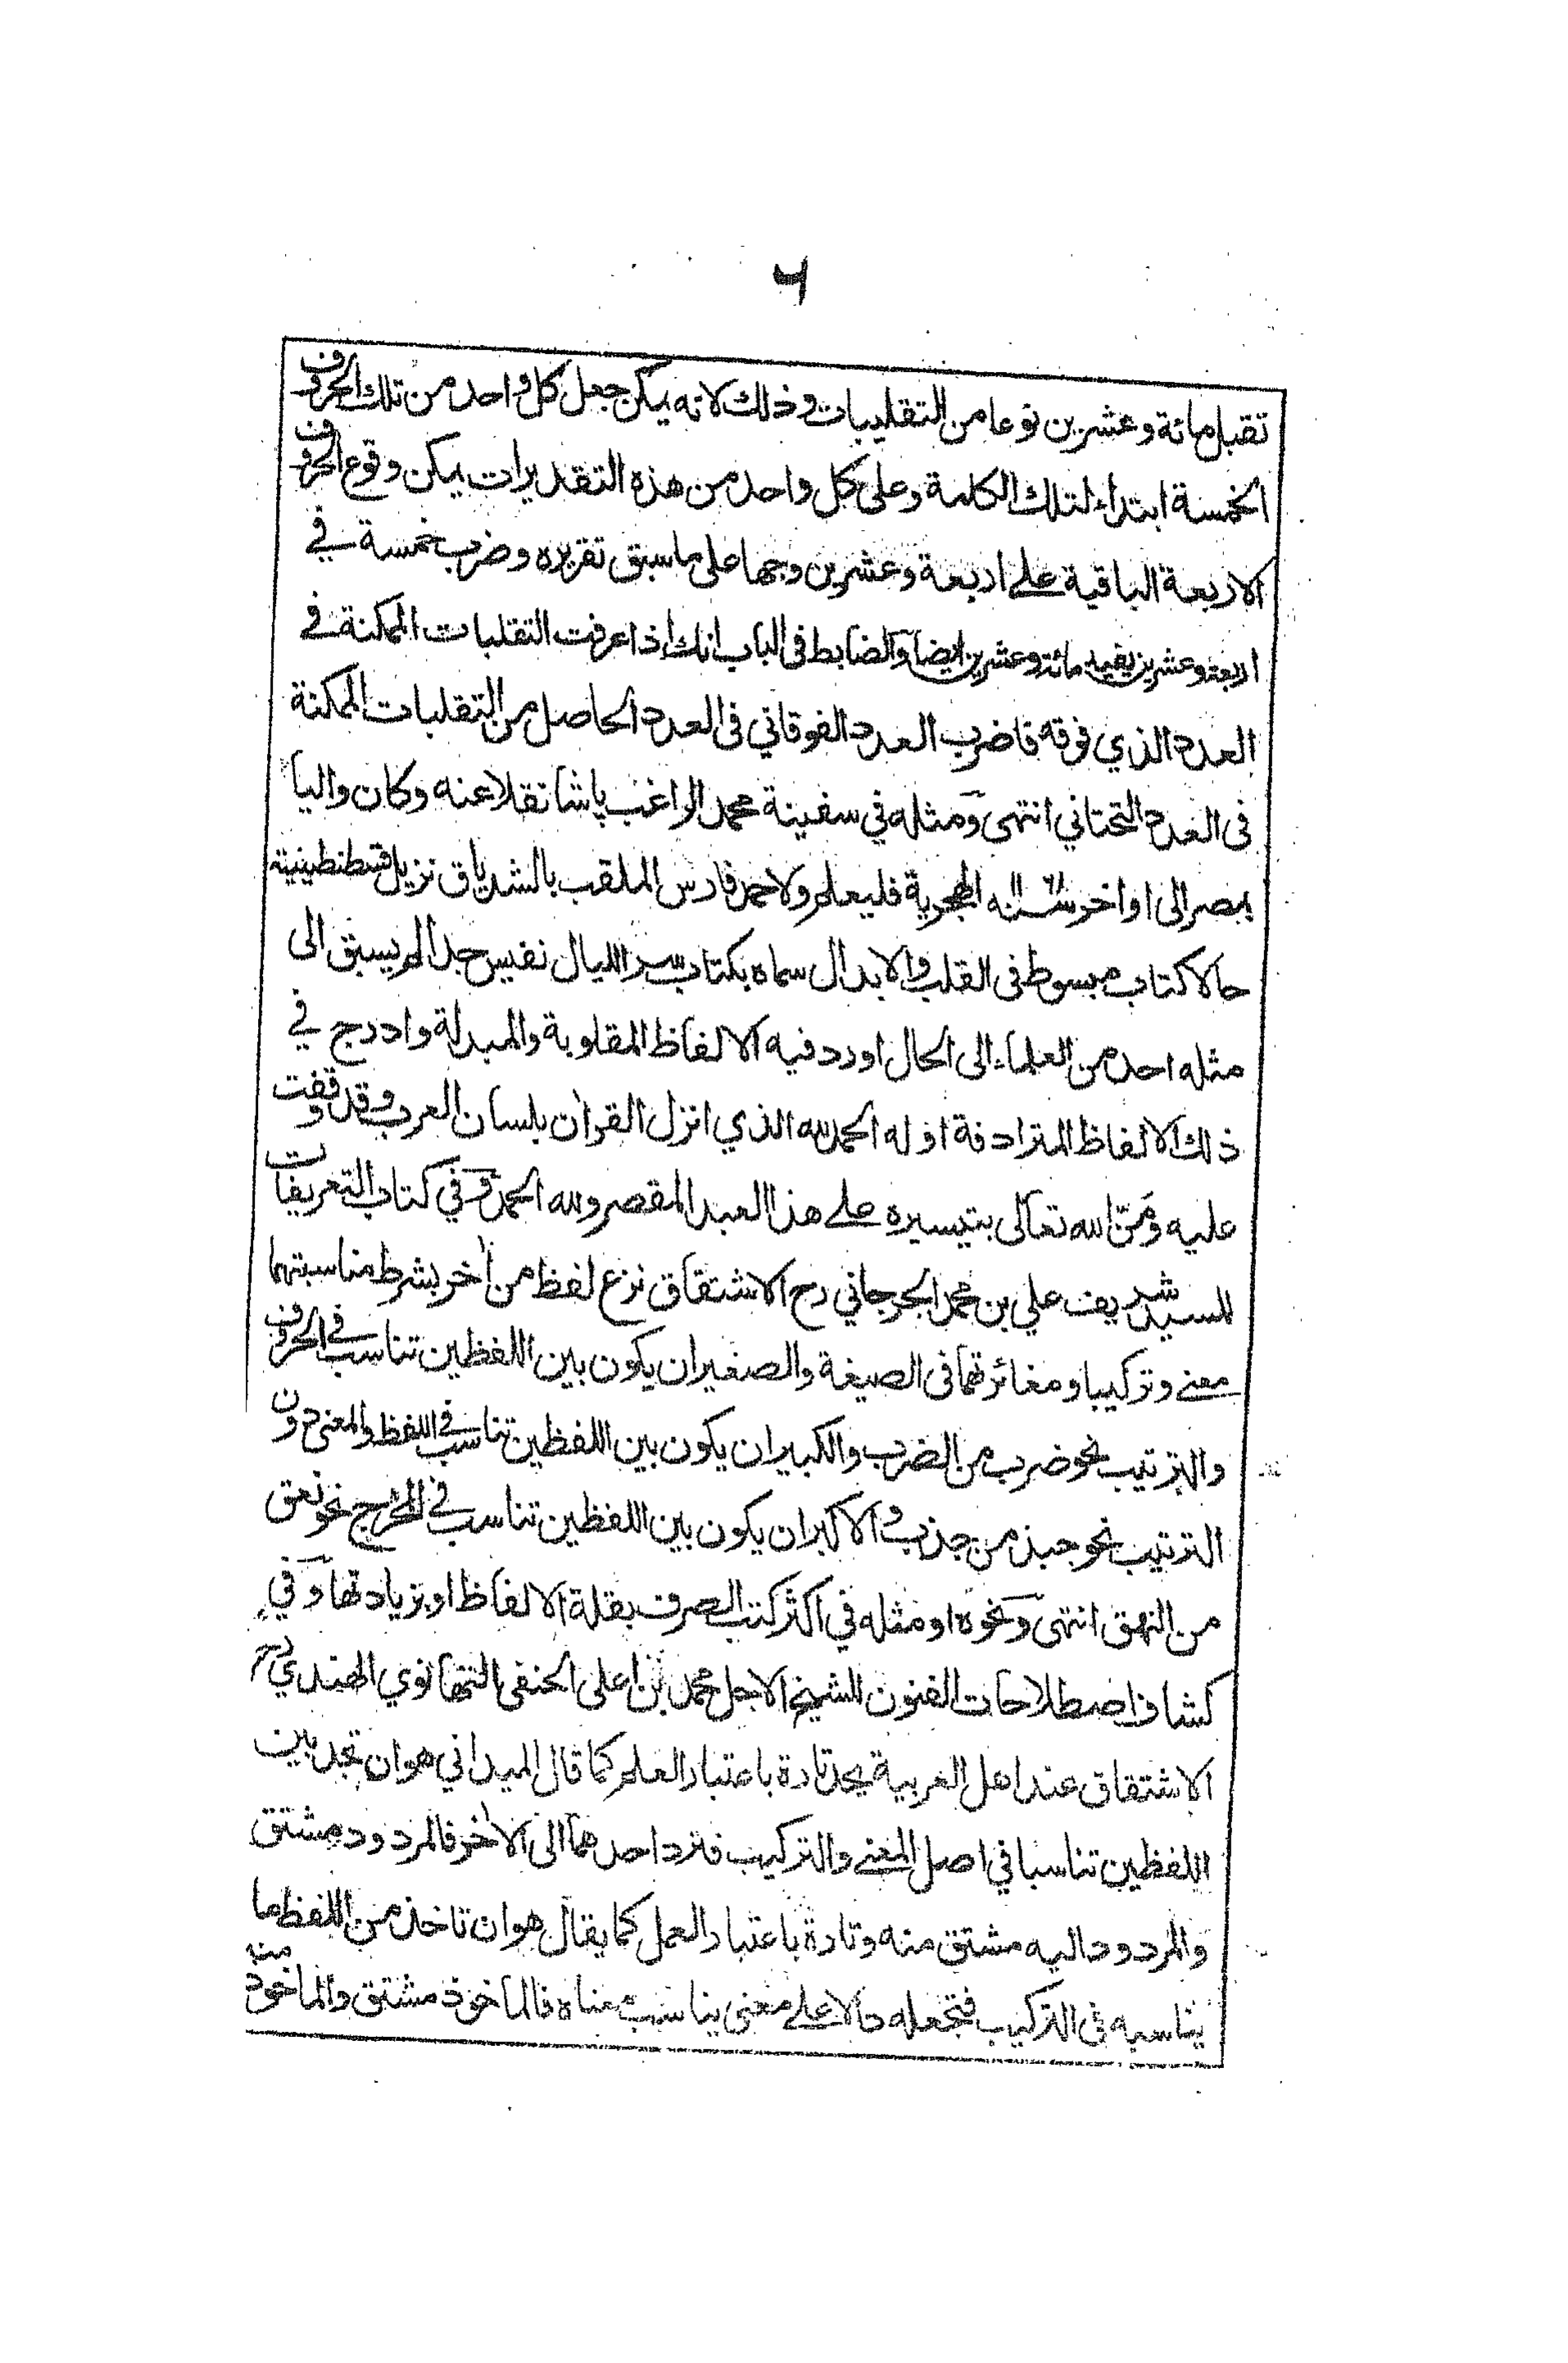 ٦
تقبل مائة وعشرين نوعا من التقليبات وذلك لانه يمكن جعل كل واحد من تلك الحروف
الخمسة ابتداء لتلك الكلمة وعلى كل واحد من هذه التقديرات يمكن وقوع الحروف
الاربعة الباقية على اربعة وعشرين وجها على ما سبق تقريره وضرب خمسة في
اربعة وعشرين يفيد مائة وعشرين ايضا والضابط فى الباب انك اذا عرفت التقلبات الممكنة في
العدد الذي فوقه فاضرب العدد الفوقاني فى العدد الحاصل من التقلبات الممكنة
فى العدد التحتاني انتهى ومثله في سفينة محمد الراغب پاشا نقلا عنه وكان واليا
بمصر الى اواخر سنه الهجرية فليعلم ولاحمد فارس الملقب بالشدياق نزيل قسطنطينية
حالا كتاب مبسوط فى القلب والابدال سماه بكتاب سر الليال نفيس جدا لم يسبق الى
مثله احد من العلماء الى الحال اورد فيه الالفاظ المقلوبة والمبدلة وادرج في
ذلك الالفاظ المترادفة اوله الحمد لله الذي انزل القرآن بلسان العرب وقد وقفت
عليه ومَنّ الله تعالى بتيسيره على هذا العبد المقصر ولله الحمد وفي كتاب التعريفات
للسيد شريف علي بن محمد الجرجاني رح الاشتقاق نزع لفظ من آخر بشرط مناسبتهما
معنى وتركيبا ومغائرتهما فى الصيغة والصغير ان يكون بين اللفظين تناسب في الحروف
والترتيب نحو ضرب من الضرب والكبير ان يكون بين اللفظين تناسب في اللفظ والمعنى دون
الترتيب نحو جبذ من جذب والاكبر ان يكون بين اللفظين تناسب في المخرج نحو نعق
من النهق انتهى ونحوه او مثله في اكثر كتب الصرف بقلة الالفاظ او بزيادتها وفي
كشاف اصطلاحات الفنون للشيخ الاجل محمد بن اعلى الحنفى التهانوي الهندي رح
الاشتقاق عند اهل العربية يحد تارة باعتبار العلم كما قال الميداني هو ان تجد بين
اللفظين تناسبا في اصل المعنى والتركيب فترد احدهما الى الآخر فالمردود مشتق
والمردود اليه مشتق منه وتارة باعتبار العمل كما يقال هو ان تاخذ من اللفظ ما
يناسبه فى التركيب فتجعله دالا على معنى يناسب معناه فالماخوذ مشتق والماخوذ منه